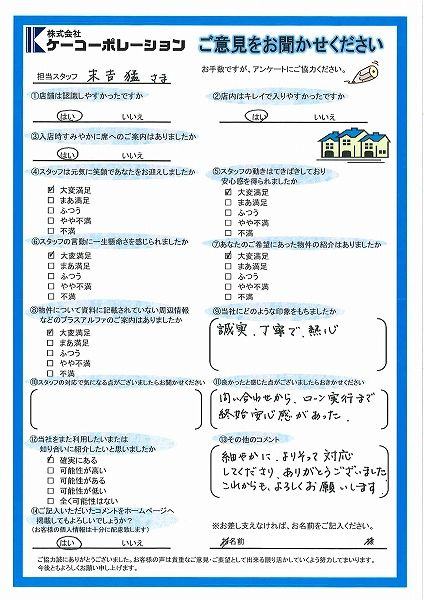 株式会社
ケーコーポレーション
ご意見をお聞かせください
担当スタッフ 末吉 猛 さま
お手数ですが、アンケートにご協力ください。
①店舗は認識しやすかったですか
はい いいえ
②店内はキレイで入りやすかったですか
はい いいえ
③入店時すみやかに席へのご案内はありましたか
はい いいえ
④スタッフは元気に笑顔であなたをお迎えしましたか
大変満足
まあ満足
ふつう
やや不満
不満
⑤スタッフの動きはてきぱきしており
安心感を得られましたか
大変満足
まあ満足
ふつう
やや不満
不満
⑥スタッフの言動に一生懸命さを感じられましたか
大変満足
まあ満足
ふつう
やや不満
不満
⑦あなたのご希望にあった物件の紹介はありましたか
大変満足
まあ満足
ふつう
やや不満
不満
⑧物件について資料に記載されていない周辺情報
などのプラスアルファのご案内はありましたか
大変満足
まあ満足
ふつう
やや不満
不満
⑨当社にどのような印象をもちましたか
誠実、丁寧で、熱心
⑩スタッフの対応で気になる点がございましたらお聞かせください
⑪良かったと感じた点がございましたらおきかせください
問い合わせから、ローン実行まで
終始安心感があった。
⑫当社をまた利用したいまたは
知り合いに紹介したいと思いましたか
確実にある
可能性が高い
可能性がある
可能性が低い
全く可能性はない
⑬その他のコメント
細やかに、よりそって対応
してくださり、ありがとうございました
これからも、よろしくお願いします。
⑭ご記入いただいたコメントをホームページへ
掲載してもよろしいでしょうか？
(お客様の個人情報は十分に配慮致します)
はい いいえ
※お差し支えなければ、お名前をご記入ください。
お名前 様
ご協力誠にありがとうございました。お客様の声は貴重なご意見・ご要望として出来る限り活かしていくよう努力してまいります。
今後ともよろしくお願い申し上げます。